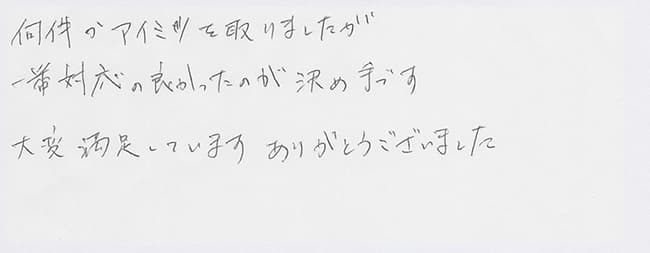 何件かアイミツを取りましたが
一番対応の良かったのが決め手です
大変満足しています ありがとうございました